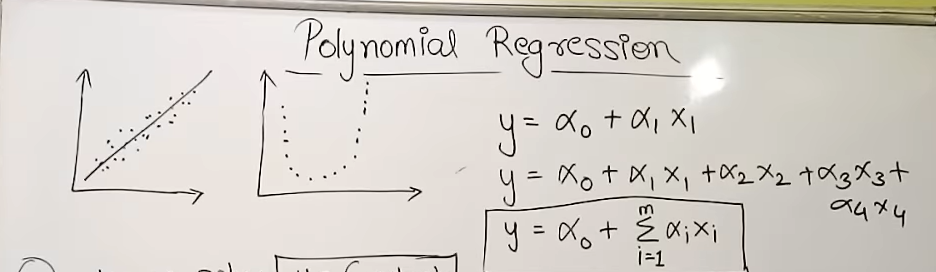 Polynomial Regression
y = α₀ + α₁ x₁
y = α₀ + α₁ x₁ + α₂ x₂ + α₃ x₃ +
α₄ x₄
y = α₀ + m Σ i=1 αᵢ xᵢ